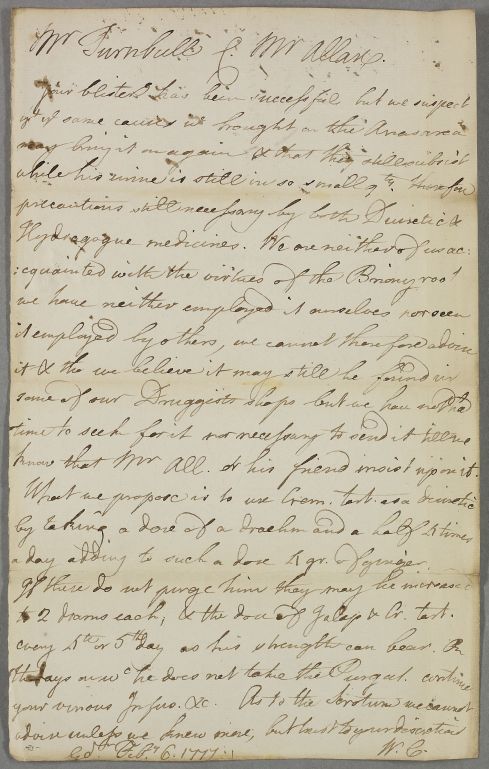 Mr Turnbull C Mr Allan.
Your blisters has been successful but we suspect
yt ye same causes wc brought on the Anasarca
may bring it on again & that they still subsist
while his urine is still in so small qty. therefore
precautions still necessary by both Diuretic &
Hydragogue medicines. We are neither of us ac:
:cquainted with the virtues of the Briony root
we have neither employed it ourselves nor seen
it employed by others, we cannot therefore advise
it & tho we believe it may still be found in
some of our Druggists shops but we have not had
time to seek for it nor necessary to send it till we
know that Mr All. or his friend insist upon it.
What we propose is to use Crem. tart. as a diuretic
by taking a dose of a drachm and a half 4 times
a day adding to such a dose 4 gr. of ginger.
If these do not purge him they may be increased
to 2 drams each, & the dose of Jalap & Cr. tart.
every 4th or 5th day as his strength can bear. On
the days on wc he does not take the Purgat. continue
your vinous Infus. &c. As to the Scrotum we cannot
advise unless we knew more, but trust to your discretion
Edr. Febr. 6. 1777. W. C.